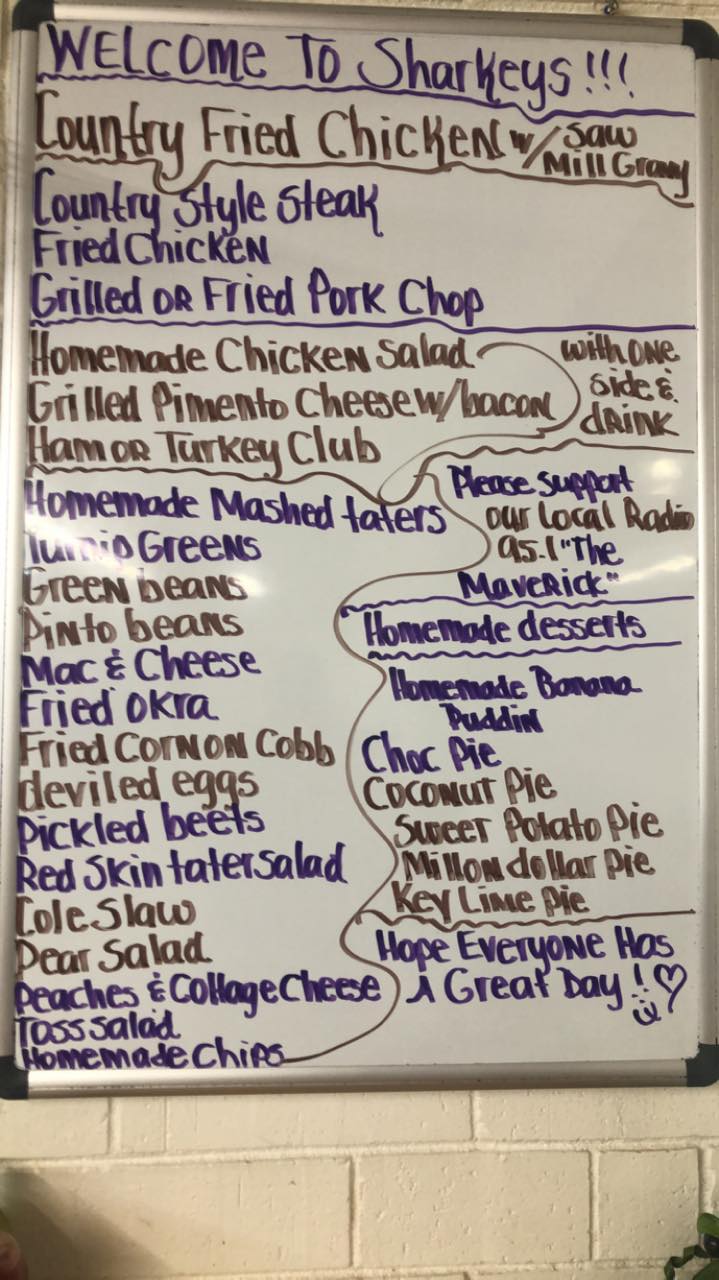 WELCOME TO Sharkeys!!!
Country Fried Chicken w/ Saw
Mill Gravy
Country Style Steak
Fried Chicken
Grilled OR Fried Pork Chop
Homemade Chicken Salad
Grilled Pimento Cheese w/bacon
Ham OR Turkey Club
with one
side &
drink
Homemade Mashed taters
Turnip Greens
Green beans
Pinto beans
Mac & Cheese
Fried Okra
Fried Corn on Cobb
deviled eggs
Pickled beets
Red Skin tater Salad
Cole Slaw
Pear Salad
Peaches & Cottage Cheese
Toss Salad
Homemade Chips
Please support
our Local Radio
95.1 "The
Maverick"
Homemade desserts
Homemade Banana
Puddin
Choc Pie
Coconut Pie
Sweet Potato Pie
Millon dollar Pie
Key Lime Pie
Hope Everyone Has
A Great Day!